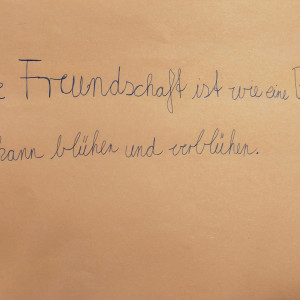 Freundschaft ist wie eine
kann blühen und verblühen.